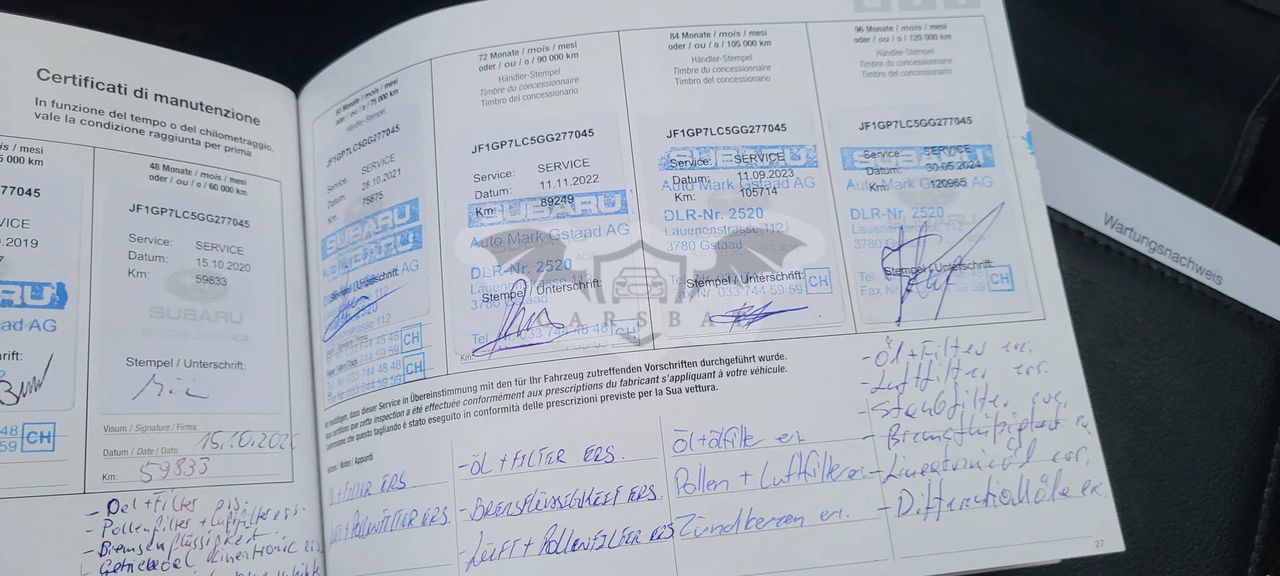 Certificati di manutenzione
In funzione del tempo o del chilometraggio,
vale la condizione raggiunta per prima
is / mesi
5 000 km
77045
VICE
.2019
AG
rift:
48
59 CH
48 Monate / mois / mesi
oder / ou / o / 60 000 km
JF1GP7LC5GG277045
Service: SERVICE
Datum: 15.10.2020
Km: 59833
SUBARU
Stempel / Unterschrift:
Visum / Signature / Firma:
Datum / Date / Data: 15.10.2020
Km: 59833
- Oel + Filter
- Pollenfilter + Luftfilter ers.
- Bremsenflüssigkeit
- Getriebeoel Lineatronic
60 Monate / mois / mesi
oder / ou / o / 75 000 km
Händler-Stempel
JF1GP7LC5GG277045
Service: SERVICE
Datum: 26.10.2021
Km: 75675
SUBARU
AG
Stempel / Unterschrift:
2520
112
033 744 48 48 CH
744 59 59
72 Monate / mois / mesi
oder / ou / o / 90 000 km
Händler-Stempel
Timbre du concessionnaire
Timbro del concessionario
JF1GP7LC5GG277045
Service: SERVICE
Datum: 11.11.2022
Km: 89249
SUBARU
Auto Mark Gstaad AG
DLR-Nr. 2520
Stempel / Unterschrift:
3780 Gstaad
Tel. 033 744 48 48 CH
Km:
84 Monate / mois / mesi
oder / ou / o / 105 000 km
Händler-Stempel
Timbre du concessionnaire
Timbro del concessionario
JF1GP7LC5GG277045
SUBARU
Service: SERVICE
Datum: 11.09.2023
Auto Mark Gstaad AG
Km: 105714
DLR-Nr. 2520
Lauenenstrasse 112
3780 Gstaad
Stempel / Unterschrift:
Fax Nr. 033 744 59 59 CH
96 Monate / mois / mesi
oder / ou / o / 120 000 km
Händler-Stempel
Timbre du concessionnaire
Timbro del concessionario
JF1GP7LC5GG277045
SUBARU
Service: SERVICE
Datum: 30.05.2024
Auto Mark Gstaad AG
Km: 120965
DLR-Nr. 2520
Lauenenstrasse 112
3780
Stempel / Unterschrift:
Tel.
Fax Nr. 59 59 CH
ARSBA
bestätigen, dass dieser Service in Übereinstimmung mit den für Ihr Fahrzeug zutreffenden Vorschriften durchgeführt wurde.
certifions que cette inspection a été effectuée conformément aux prescriptions du fabricant s'appliquant à votre véhicule.
che questo tagliando è stato eseguito in conformità delle prescrizioni previste per la Sua vettura.
/ Notes / Appunti
ÖL + FILTER ERS
+ POLLENFILTER ERS.
- ÖL + FILTER ERS.
- BREMSFLÜSSIGKEIT ERS.
- LUFT + POLLENFILTER ERS
Öl + ölfilter er.
Pollen + Luftfilter er.
Zündkerzen er.
- Öl + Filter er.
- Luftfilter ers.
- Staubfilter
- Bremsflüssigkeit
- Lineartronicöl
- Differentialöle er.
27
Wartungsnachweis